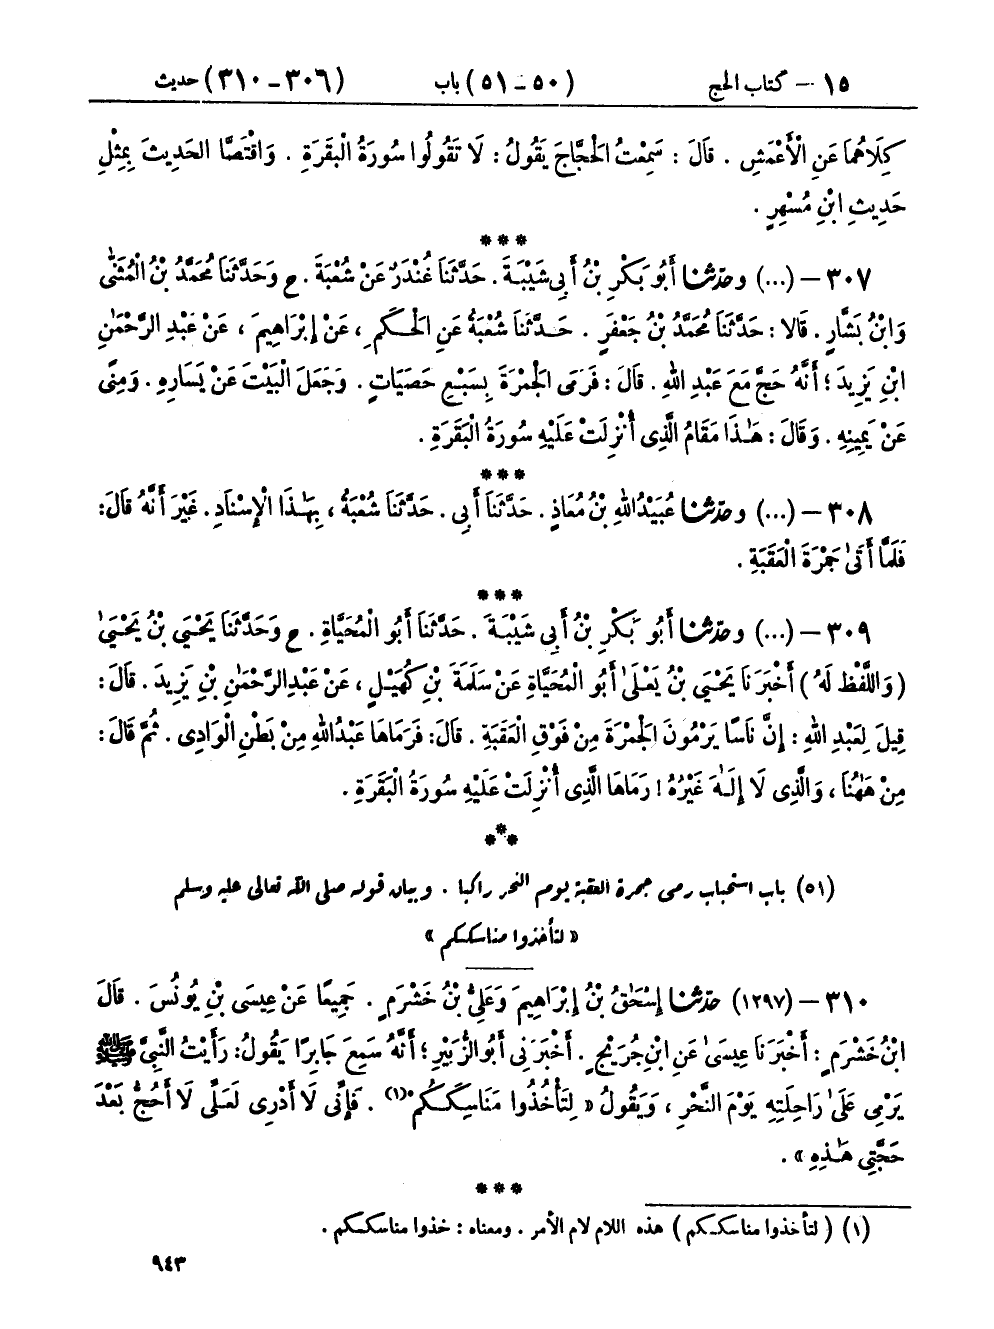 ١٥ — كتاب الحج (٥٠ – ٥١) باب (٣٠٦ – ٣١٠) حديث
كِلَاهُمَا عَنِ الْأَعْمَشِ . قَالَ : سَمِعْتُ الْحَجَّاجَ يَقُولُ : لَا تَقُولُوا سُورَةُ الْبَقَرَةِ . وَاقْتَصَّا الْحَدِيثَ بِمِثْلِ
حَدِيثِ ابْنِ مُسْهِرٍ .
***
٣٠٧ — (...) وحدّثنا أَبُو بَكْرِ بْنُ أَبِي شَيْبَةَ . حَدَّثَنَا غُنْدَرٌ عَنْ شُعْبَةَ . ع وَحَدَّثَنَا مُحَمَّدُ بْنُ الْمُثَنَّى
وَابْنُ بَشَّارٍ . قَالَا : حَدَّثَنَا مُحَمَّدُ بْنُ جَعْفَرٍ . حَدَّثَنَا شُعْبَةُ عَنِ الْحَكَمِ ، عَنْ إِبْرَاهِيمَ ، عَنْ عَبْدِ الرَّحْمَٰنِ
ابْنِ يَزِيدَ ؛ أَنَّهُ حَجَّ مَعَ عَبْدِ اللهِ . قَالَ : فَرَمَى الْجَمْرَةَ بِسَبْعِ حَصَيَاتٍ . وَجَعَلَ الْبَيْتَ عَنْ يَسَارِهِ . وَمِنًى
عَنْ يَمِينِهِ . وَقَالَ : هَٰذَا مَقَامُ الَّذِي أُنْزِلَتْ عَلَيْهِ سُورَةُ الْبَقَرَةِ .
***
٣٠٨ — (...) وحدّثنا عُبَيْدُ اللهِ بْنُ مُعَاذٍ . حَدَّثَنَا أَبِي . حَدَّثَنَا شُعْبَةُ ، بِهَٰذَا الْإِسْنَادِ . غَيْرَ أَنَّهُ قَالَ :
فَلَمَّا أَتَىٰ جَمْرَةَ الْعَقَبَةِ .
***
٣٠٩ — (...) وحدّثنا أَبُو بَكْرِ بْنُ أَبِي شَيْبَةَ . حَدَّثَنَا أَبُو الْمُحَيَّاةِ . ع وَحَدَّثَنَا يَحْيَى بْنُ يَحْيَىٰ
(وَاللَّفْظُ لَهُ) أَخْبَرَنَا يَحْيَى بْنُ يَعْلَىٰ أَبُو الْمُحَيَّاةِ عَنْ سَلَمَةَ بْنِ كُهَيْلٍ ، عَنْ عَبْدِ الرَّحْمَٰنِ بْنِ يَزِيدَ . قَالَ :
قِيلَ لِعَبْدِ اللهِ : إِنَّ نَاسًا يَرْمُونَ الْجَمْرَةَ مِنْ فَوْقِ الْعَقَبَةِ . قَالَ : فَرَمَاهَا عَبْدُ اللهِ مِنْ بَطْنِ الْوَادِي . ثُمَّ قَالَ :
مِنْ هَٰهُنَا ، وَالَّذِي لَا إِلَٰهَ غَيْرُهُ ! رَمَاهَا الَّذِي أُنْزِلَتْ عَلَيْهِ سُورَةُ الْبَقَرَةِ .
***
(٥١) باب استحباب رمى جمرة العقبة يوم النحر راكبا . وبيان قوله صلى الله تعالى عليه وسلم
« لتأخذوا مناسككم »
٣١٠ — (١٢٩٧) حدّثنا إِسْحَٰقُ بْنُ إِبْرَاهِيمَ وَعَلِيُّ بْنُ خَشْرَمٍ . جَمِيعًا عَنْ عِيسَى بْنِ يُونُسَ . قَالَ
ابْنُ خَشْرَمٍ : أَخْبَرَنَا عِيسَىٰ عَنِ ابْنِ جُرَيْجٍ . أَخْبَرَنِي أَبُو الزُّبَيْرِ ؛ أَنَّهُ سَمِعَ جَابِرًا يَقُولُ : رَأَيْتُ النَّبِيَّ ﷺ
يَرْمِي عَلَىٰ رَاحِلَتِهِ يَوْمَ النَّحْرِ ، وَيَقُولُ « لِتَأْخُذُوا مَنَاسِكَكُمْ (١) . فَإِنِّي لَا أَدْرِي لَعَلِّي لَا أَحُجُّ بَعْدَ
حَجَّتِي هَٰذِهِ » .
***
(١) ( لتأخذوا مناسككم ) هذه اللام لام الأمر . ومعناه : خذوا مناسككم .
٩٤٣